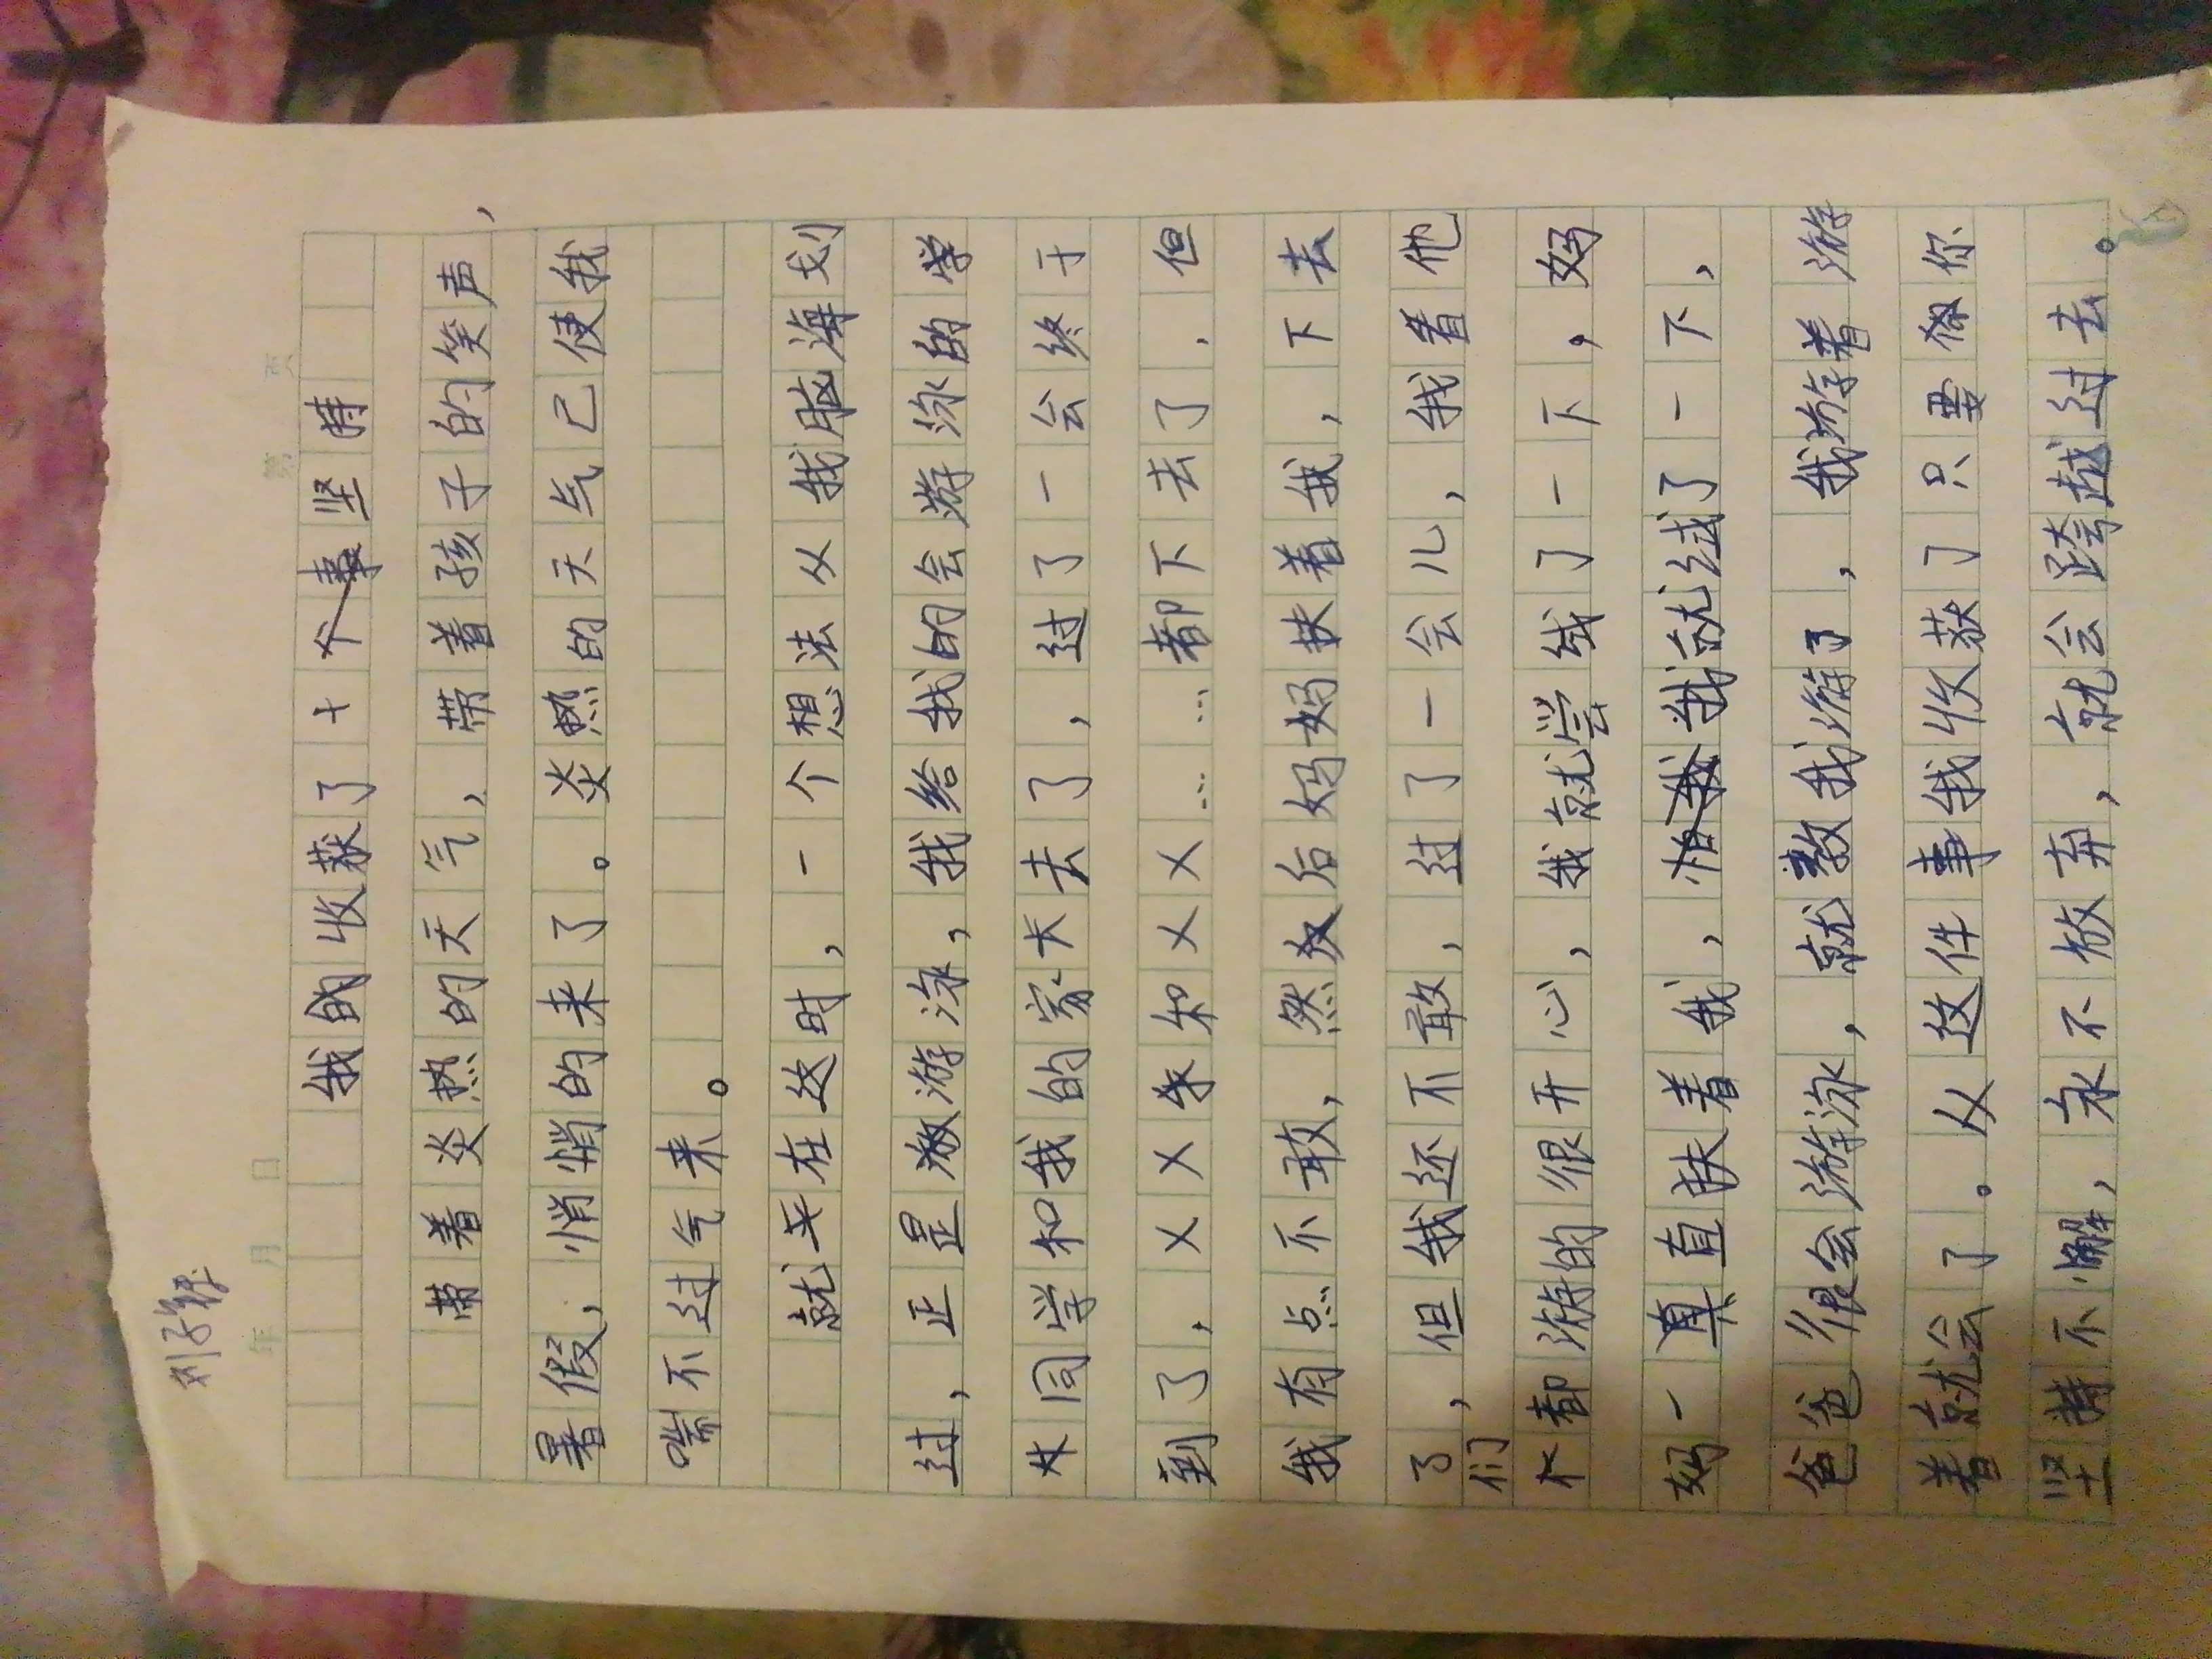 刘子
年 月 日
第 页
我的收获了十个事坚持
带着炎热的天气，带着孩子的笑声，
暑假，悄悄的来了。炎热的天气已使我
喘不过气来。
就在这时，一个想法从我脑海划
过，正是教游泳，我给我的会游泳的学
同学和我的家长去了，过了一会终于
到了，XX朱和XX……都下去了．但
我有点不敢，然后妈妈扶着我，下去
了，但我还不敢，过了一会儿，我看他
们
都游的很开心，我就尝线了一下，妈
妈一真直扶着我，怕我我就试了一下，
爸爸很会游泳，就教我游了，我游着游
着就会了。从这件事我收获了只要你
坚持不懈，永不放弃，就会跨越过去。